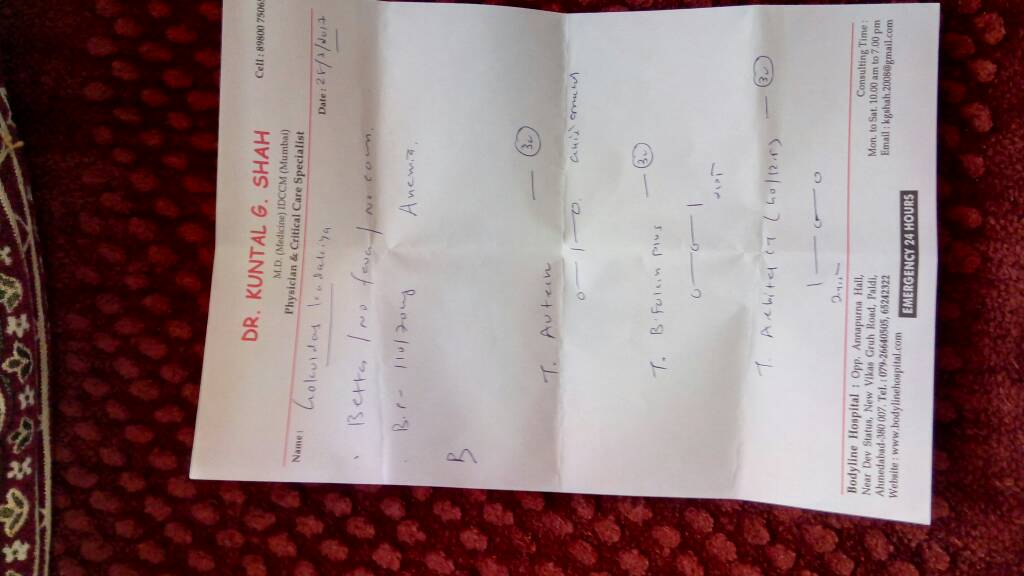 DR. KUNTAL G. SHAH
M.D. (Medicine) IDCCM (Mumbai)
Physician & Critical Care Specialist
Cell : 89800 75065
Name :
Date : 25/3/2017
Better / No fever / No com
BP - 110/70 mm Anemia.
T. Auterin — 30
0 — 1 — 0
T. B-Folcin plus — 30
0 — 0 — 1
T. Arbitel CT (40/12.5) — 30
1 — 0 — 0
Bodyline Hospital : Opp. Annapurna Hall,
Near Dev Status, New Vikas Gruh Road, Paldi,
Ahmedabad-380 007. Tel. : 079-26640505, 65242322
Website : www.bodylinehospital.com
EMERGENCY 24 HOURS
Consulting Time :
Mon. to Sat. 10.00 am to 7.00 pm
Email : kgshah.2008@gmail.com